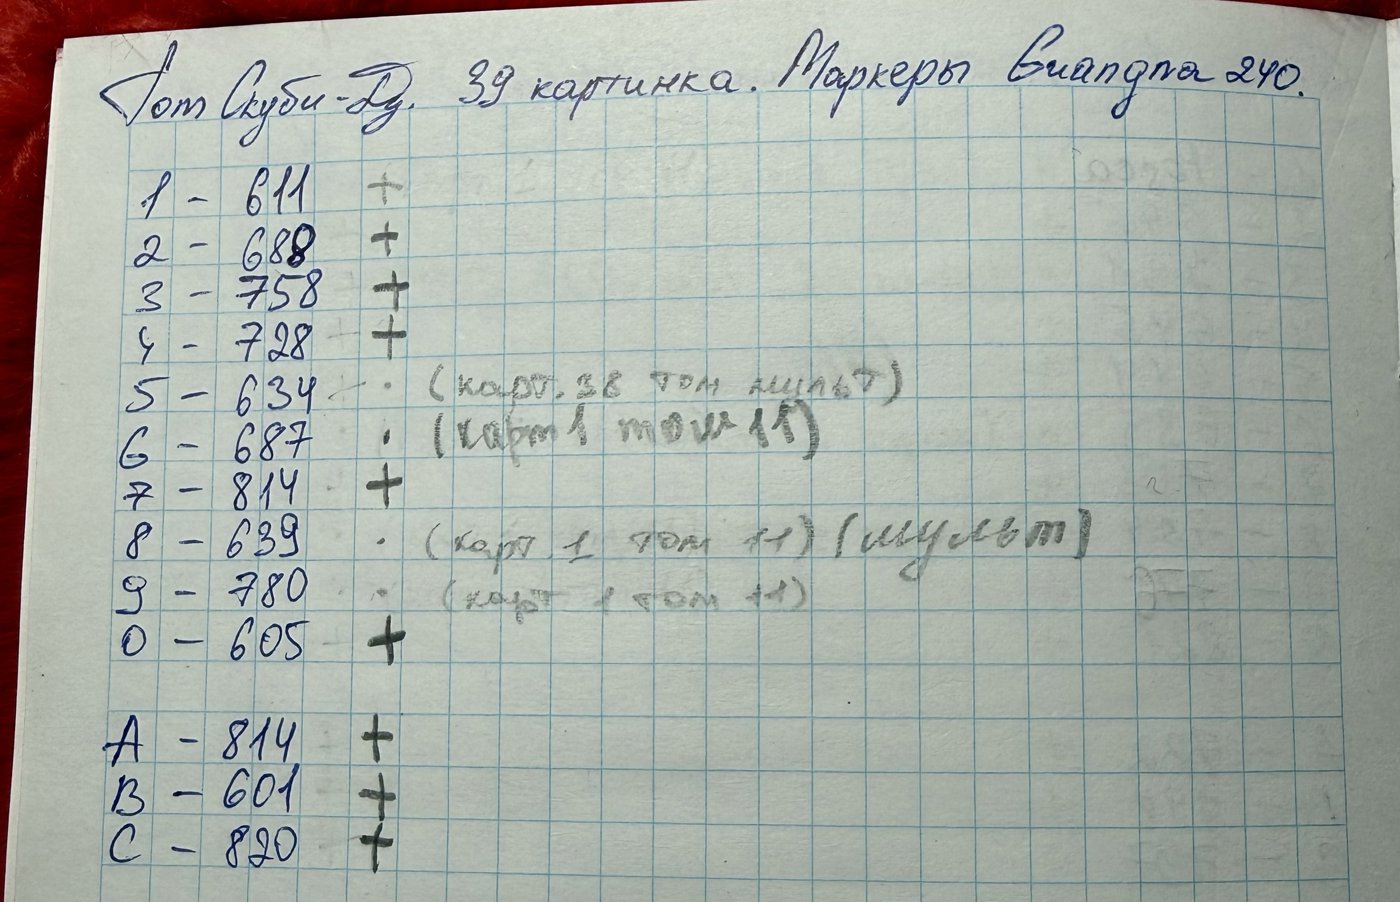 Том Скуби-Ду. 39 картинка. Маркеры Guangna 240.
1 - 611 +
2 - 688 +
3 - 758 +
4 - 728 +
5 - 634 · (карт. 38 том мульт)
6 - 687 · (карт 1 том 11)
7 - 814 +
8 - 639 · (карт 1 том 11) (мульт)
9 - 780 · (карт 1 том 11)
0 - 605 +
A - 814 +
B - 601 +
C - 820 +